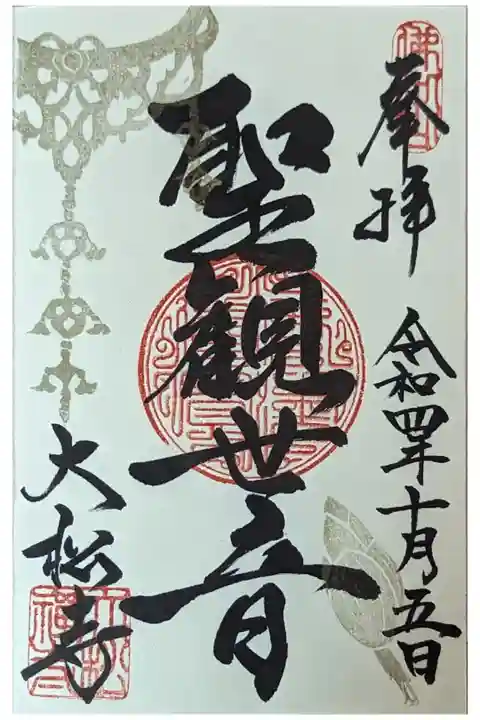 奉拝
令和四年十月五日
聖観世音
大松寺